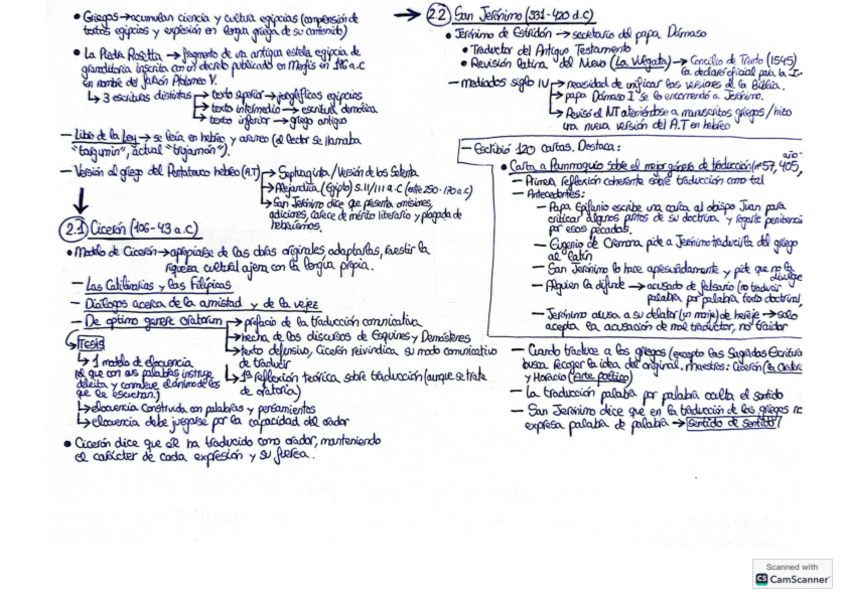 • Griegos → acumulan ciencia y cultura egipcias (comprensión de
textos egipcios y expresión en lengua griega de su contenido)
• La Piedra Rosetta → fragmento de una antigua estela egipcia de
granodiorita inscrita con un decreto publicado en Menfis en 196 a.c
en nombre del faraón Ptolomeo V.
↳ 3 escrituras distintas → texto superior → jeroglíficos egipcios
→ texto intermedio → escritura demótica
→ texto inferior → griego antiguo
— Libro de la Ley → se leía en hebreo y arameo (el lector se llamaba
"targumin", actual "trujamón").
— Versión al griego del Pentateuco hebreo (A.T) → Septuaginta / Versión de los Setenta
→ Alejandría (Egipto) S.II/III a.C (entre 250-170 a.c)
→ San Jerónimo dice que presenta omisiones,
adiciones, carece de mérito literario y plagada de
hebraísmos.
2.1 Cicerón (106-43 a.c)
• Modelo de Cicerón → apropiarse de las obras originales, adaptarlas, revestir la
riqueza cultural ajena con la lengua propia.
— Las Catilinarias y las Filípicas
— Diálogos acerca de la amistad y de la vejez
— De optimo genere oratorum → prefacio de la traducción comunicativa
→ hecha de los discursos de Esquines y Demóstenes
→ texto defensivo, Cicerón reivindica su modo comunicativo
de traducir
→ 1ª reflexión teórica sobre traducción (aunque se trate
de oratoria)
Tesis
↳ 1 modelo de elocuencia
(el que con sus palabras instruye,
deleita y conmueve el ánimo de los
que le escuchan.)
↳ elocuencia construida con palabras y pensamientos
↳ elocuencia debe juzgarse por la capacidad del orador
• Cicerón dice que él ha traducido como orador, manteniendo
el carácter de cada expresión y su fuerza.
→ 2.2 San Jerónimo (331-420 d.c)
• Jerónimo de Estridón → secretario del papa Dámaso
• Traductor del Antiguo Testamento
• Revisión latina del Nuevo (La Vulgata) → Concilio de Trento (1545)
la declaró oficial para la I.
— mediados siglo IV → necesidad de unificar las versiones de la Biblia.
→ papa Dámaso I se lo encomendó a Jerónimo.
→ Revisó el NT ateniéndose a manuscritos griegos / hizo
una nueva versión del A.T en hebreo
— Escribió 120 cartas. Destaca:
• Carta a Pammaquio sobre el mejor género de traducción (nº57, año 405,
— Primera reflexión coherente sobre traducción como tal
— Antecedentes:
— Papa Epifanio escribe una carta al obispo Juan para
criticar algunos puntos de su doctrina y rogarle penitencia
por esos pecados.
— Eugenio de Cremona pide a Jerónimo traducirla del griego
al latín
— San Jerónimo lo hace apresuradamente y pide que no la
divulgue
— Alguien la difunde → acusado de falsario (no traducir
palabra por palabra texto doctrinal,
— Jerónimo acusa a su delator (un monje) de hereje → solo
acepta la acusación de mal traductor, no traidor
— Cuando traduce a los griegos (excepto las Sagradas Escritura
busca recoger la idea del original. maestros: Cicerón (
y Horacio (Arte poética)
— La traducción palabra por palabra oculta el sentido
— San Jerónimo dice que en la traducción de los griegos nc
expresa palabra de palabra → sentido de sentido /
Scanned with
CS CamScanner